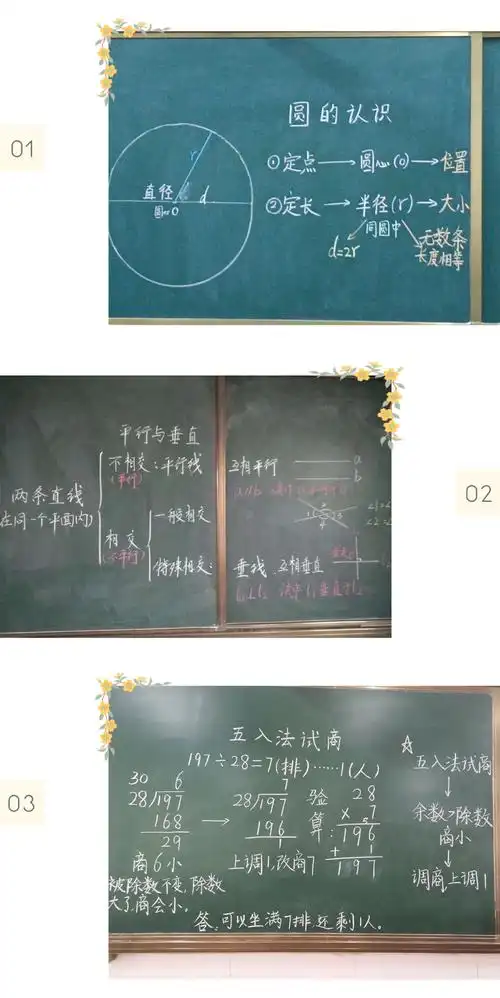 01
圆的认识
①定点→圆心(O)→位置
②定长→半径(r)→大小
同圆中
d=2r
无数条
长度相等
r
直径
d
圆心O
02
平行与垂直
两条直线
(在同一个平面内)
不相交:平行线
(平行)
相交
(不平行)
一般相交
特殊相交:
互相平行
a
b
a//b
垂线
互相垂直
03
五入法试商
197÷28=7(排)……1(人)
30 6
28/197
168
29
商6小
被除数不变,除数
大了,商会小。
→
7
28/197
196
1
上调1,改商7
验算:
28
×7
196
+1
197
答:可以坐满7排还剩1人。
☆
五入法试商
↓
余数>除数
商小
↓
调商上调1